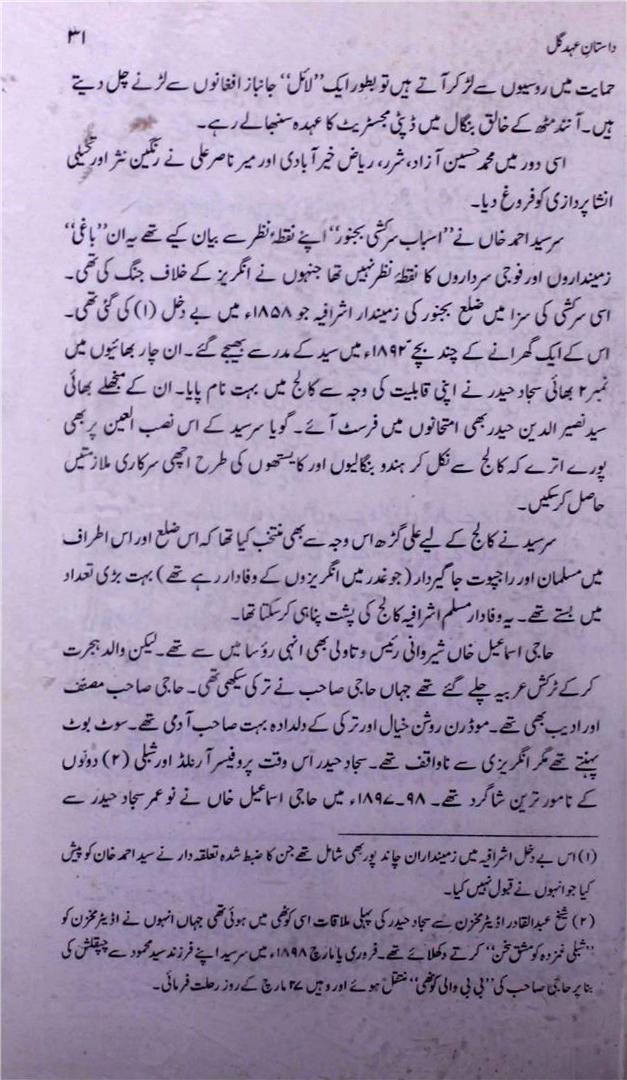 داستانِ عہد گل
۳۱
حمایت میں روسیوں سے لڑ کر آتے ہیں تو بطور ایک ’’لائل‘‘ جانباز افغانوں سے لڑنے چل دیتے
ہیں۔ آنند مٹھ کے خالق بنگال میں ڈپٹی مجسٹریٹ کا عہدہ سنبھالے رہے۔
اسی دور میں محمد حسین آزاد، شرر، ریاض خیر آبادی اور میر ناصر علی نے رنگین نثر اور تخیلی
انشا پردازی کو فروغ دیا۔
سر سید احمد خاں نے ’’اسباب سرکشی بجنور‘‘ اپنے نقطۂ نظر سے بیان کیے تھے یہ ان ’’باغی‘‘
زمینداروں اور فوجی سرداروں کا نقطۂ نظر نہیں تھا جنہوں نے انگریز کے خلاف جنگ کی تھی۔
اسی سرکشی کی سزا میں ضلع بجنور کی زمیندار اشرافیہ جو ۱۸۵۸ء میں بے دخل (۱) کی گئی تھی۔
اس کے ایک گھرانے کے چند بچے ۱۸۹۲ء میں سید کے مدرسے بھیجے گئے۔ ان چار بھائیوں میں
نمبر ۲ بھائی سجاد حیدر نے اپنی قابلیت کی وجہ سے کالج میں بہت نام پایا۔ ان کے منجھلے بھائی
سید نصیر الدین حیدر بھی امتحانوں میں فرسٹ آئے۔ گویا سرسید کے اس نصب العین پر بھی
پورے اترے کہ کالج سے نکل کر ہندو بنگالیوں اور کایستھوں کی طرح اچھی سرکاری ملازمتیں
حاصل کر سکیں۔
سرسید نے کالج کے لیے علی گڑھ اس وجہ سے بھی منتخب کیا تھا کہ اس ضلع اور اس اطراف
میں مسلمان اور راجپوت جاگیردار (جو غدر میں انگریزوں کے وفادار رہے تھے) بہت بڑی تعداد
میں بستے تھے۔ یہ وفادار مسلم اشرافیہ کالج کی پشت پناہی کر سکتا تھا۔
حاجی اسماعیل خاں شیروانی رئیس دتاولی بھی انہی رؤسا میں سے تھے۔ لیکن والد ہجرت
کر کے ٹرکش عربیہ چلے گئے تھے جہاں حاجی صاحب نے ترکی سیکھی تھی۔ حاجی صاحب مصنف
اور ادیب بھی تھے۔ موڈرن روشن خیال اور ترکی کے دلدادہ بہت صاحب آدمی تھے۔ سوٹ بوٹ
پہنتے تھے مگر انگریزی سے ناواقف تھے۔ سجاد حیدر اس وقت پروفیسر آرنلڈ اور شبلی (۲) دونوں
کے نامور ترین شاگرد تھے۔ ۹۸۔۱۸۹۷ء میں حاجی اسماعیل خاں نے نو عمر سجاد حیدر سے
(۱) اس بے دخل اشرافیہ میں زمینداران چاند پور بھی شامل تھے جن کا ضبط شدہ تعلقہ دار نے سید احمد خان کو پیش
کیا جو انہوں نے قبول نہیں کیا۔
(۲) شیخ عبدالقادر اڈیٹر مخزن سے سجاد حیدر کی پہلی ملاقات اسی کوٹھی میں ہوئی تھی جہاں انہوں نے اڈیٹر مخزن کو
’’شبلی غمزدہ کو مشق سخن‘‘ کرتے دکھلائے تھے۔ فروری یا مارچ ۱۸۹۸ء میں سرسید اپنے فرزند سید محمود سے چپقلش کی
بنا پر حاجی صاحب کی ’’بی بی والی کوٹھی‘‘ منتقل ہوئے اور وہیں ۲۷ مارچ کے روز رحلت فرمائی۔